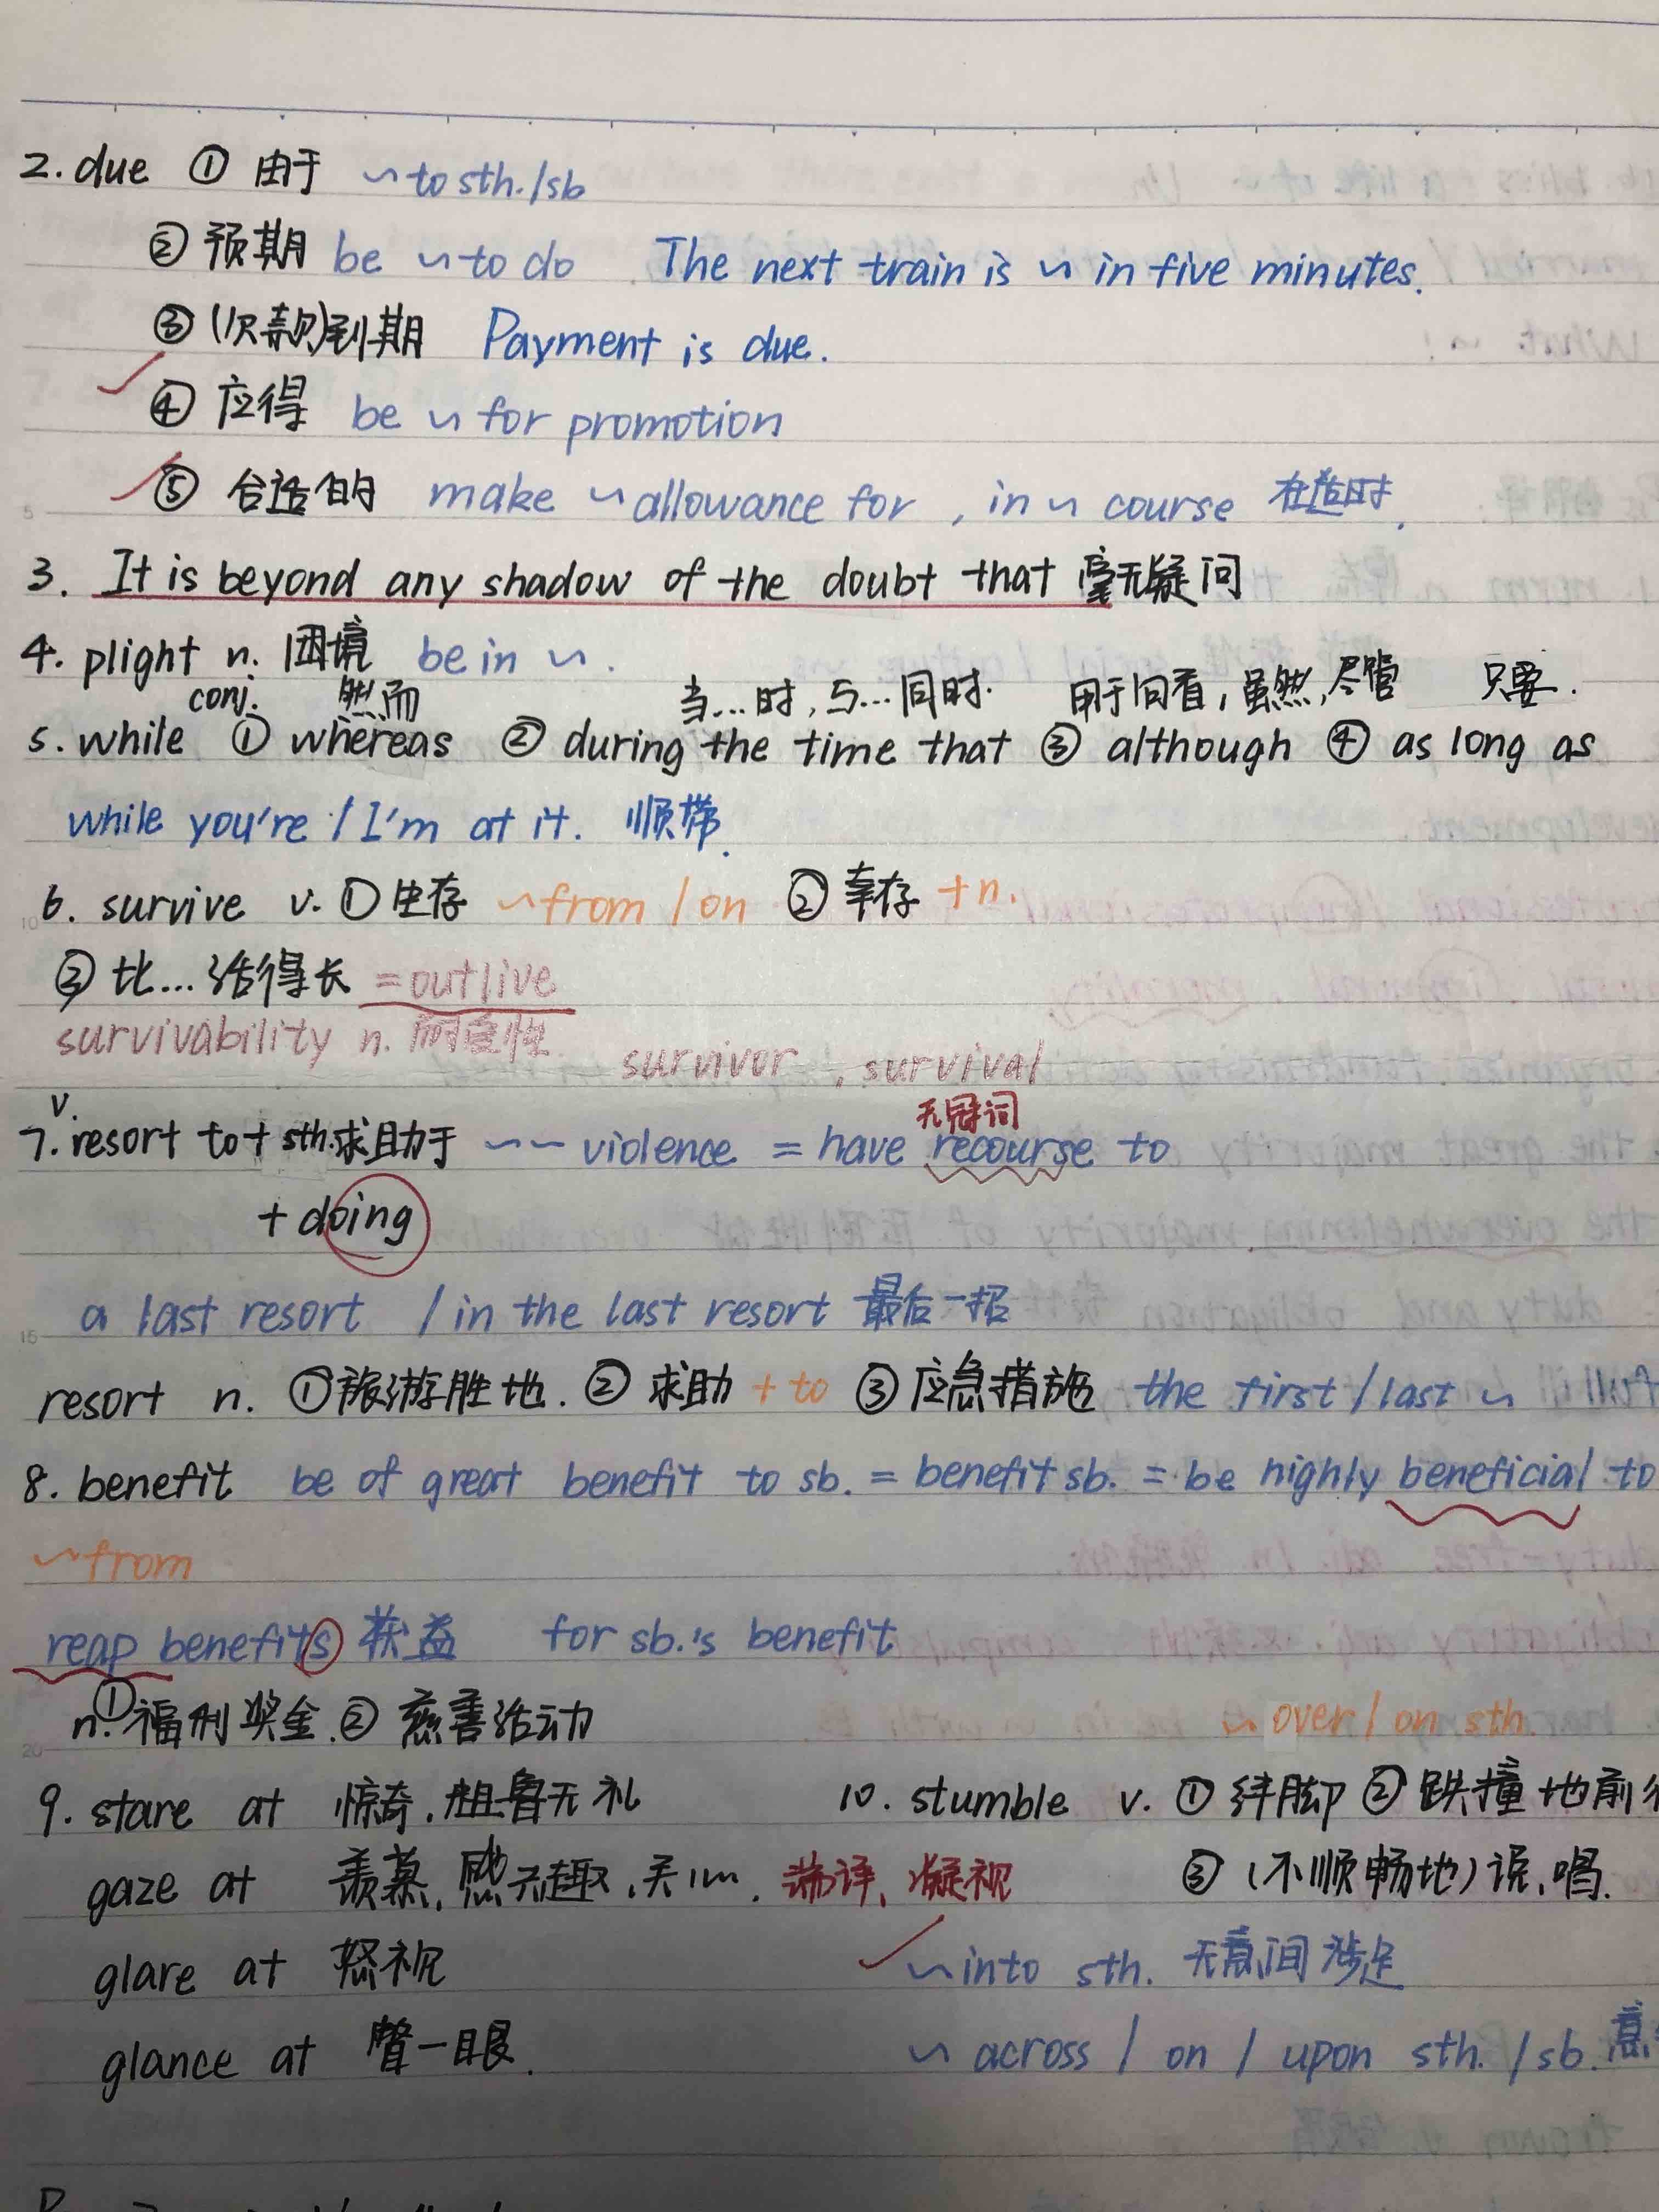 2. due ① 由于 ~ to sth./sb
② 预期 be ~ to do . The next train is ~ in five minutes.
③ (欠款)到期 Payment is due.
④ 应得 be ~ for promotion
⑤ 合适的 make ~ allowance for , in ~ course 在适时.
3. It is beyond any shadow of the doubt that 毫无疑问
4. plight n. 困境 be in ~.
conj. 然而 当...时, 与...同时. 用于句首, 虽然, 尽管 只要.
5. while ① whereas ② during the time that ③ although ④ as long as
while you're / I'm at it. 顺带.
6. survive v. ① 生存 ~ from / on ② 幸存 + n.
③ 比... 活得长 = outlive
survivability n. 耐受性
survivor , survival
v. 无冠词
7. resort to + sth. 求助于 ~ ~ violence = have recourse to
+ doing
a last resort / in the last resort 最后一招
resort n. ① 旅游胜地. ② 求助 + to ③ 应急措施 the first / last ~
8. benefit be of great benefit to sb. = benefit sb. = be highly beneficial to
~ from
reap benefits 获益 for sb.'s benefit
n. ① 福利奖金. ② 慈善活动
~ over / on sth.
9. stare at 惊奇, 粗鲁无礼 10. stumble v. ① 绊脚 ② 跌撞地前
gaze at 羡慕, 感兴趣, 关心. 端详、凝视 ③ (不顺畅地) 说、唱.
glare at 怒视 ~ into sth. 无意间涉足
glance at 瞥一眼. ~ across / on / upon sth. / sb. 意